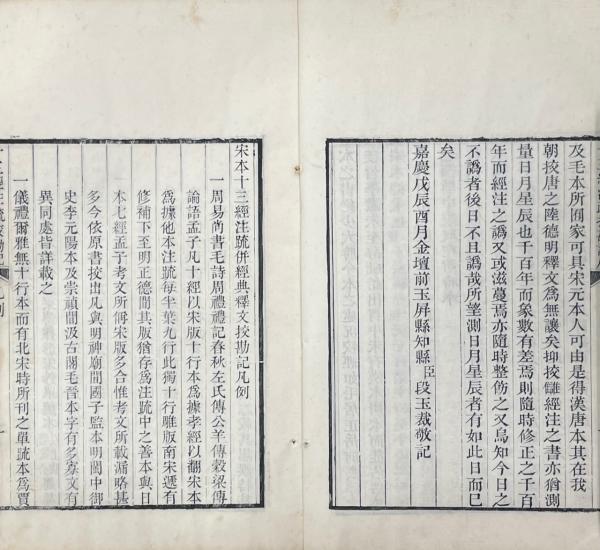 及毛本所囿家可具宋元本人可由是得漢唐本其在我
朝挍唐之陸德明釋文爲無讓矣抑挍讎經注之書亦猶測
量日月星辰也千百年而象數有差焉則隨時修正之千百
年而經注之譌又或滋蔓焉亦隨時整飭之又烏知今日之
不譌者後日不且譌哉所望測日月星辰者有如此日而已
矣
嘉慶戊辰酉月金壇前玉屛縣知縣臣段玉裁敬記
宋本十三經注疏併經典釋文挍勘記凡例
一周易尚書毛詩周禮禮記春秋左氏傳公羊傳穀梁傳
論語孟子凡十經以宋版十行本爲據孝經以翻宋本
爲據他本注疏每半葉九行此獨十行雖版南宋遞有
修補下至明正德閒其版猶存爲注疏中之善本與日
本七經孟子考文所偁宋版多合惟考文所載漏略甚
多今依原書挍出凡與明神廟閒國子監本明閩中御
史李元陽本及崇禎閒汲古閣毛晉本字有多寡文有
異同處皆詳載之
一儀禮爾雅無十行本而有北宋時所刊之單疏本爲賈